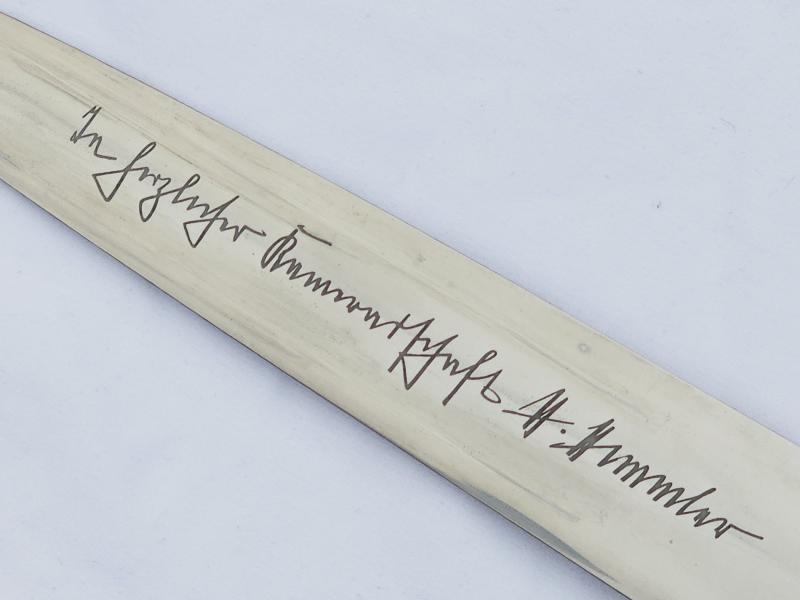 In herzlicher Kameradschaft H. Himmler